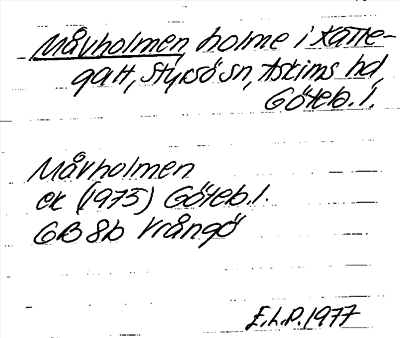 Måvholmen, holme i Katte-
gatt, Styrsö sn, Askims hd,
Göteb. l.
Måvholmen
ek (1975) Göteb. l.
GB 8b Vrångö
E.h.P. 1977